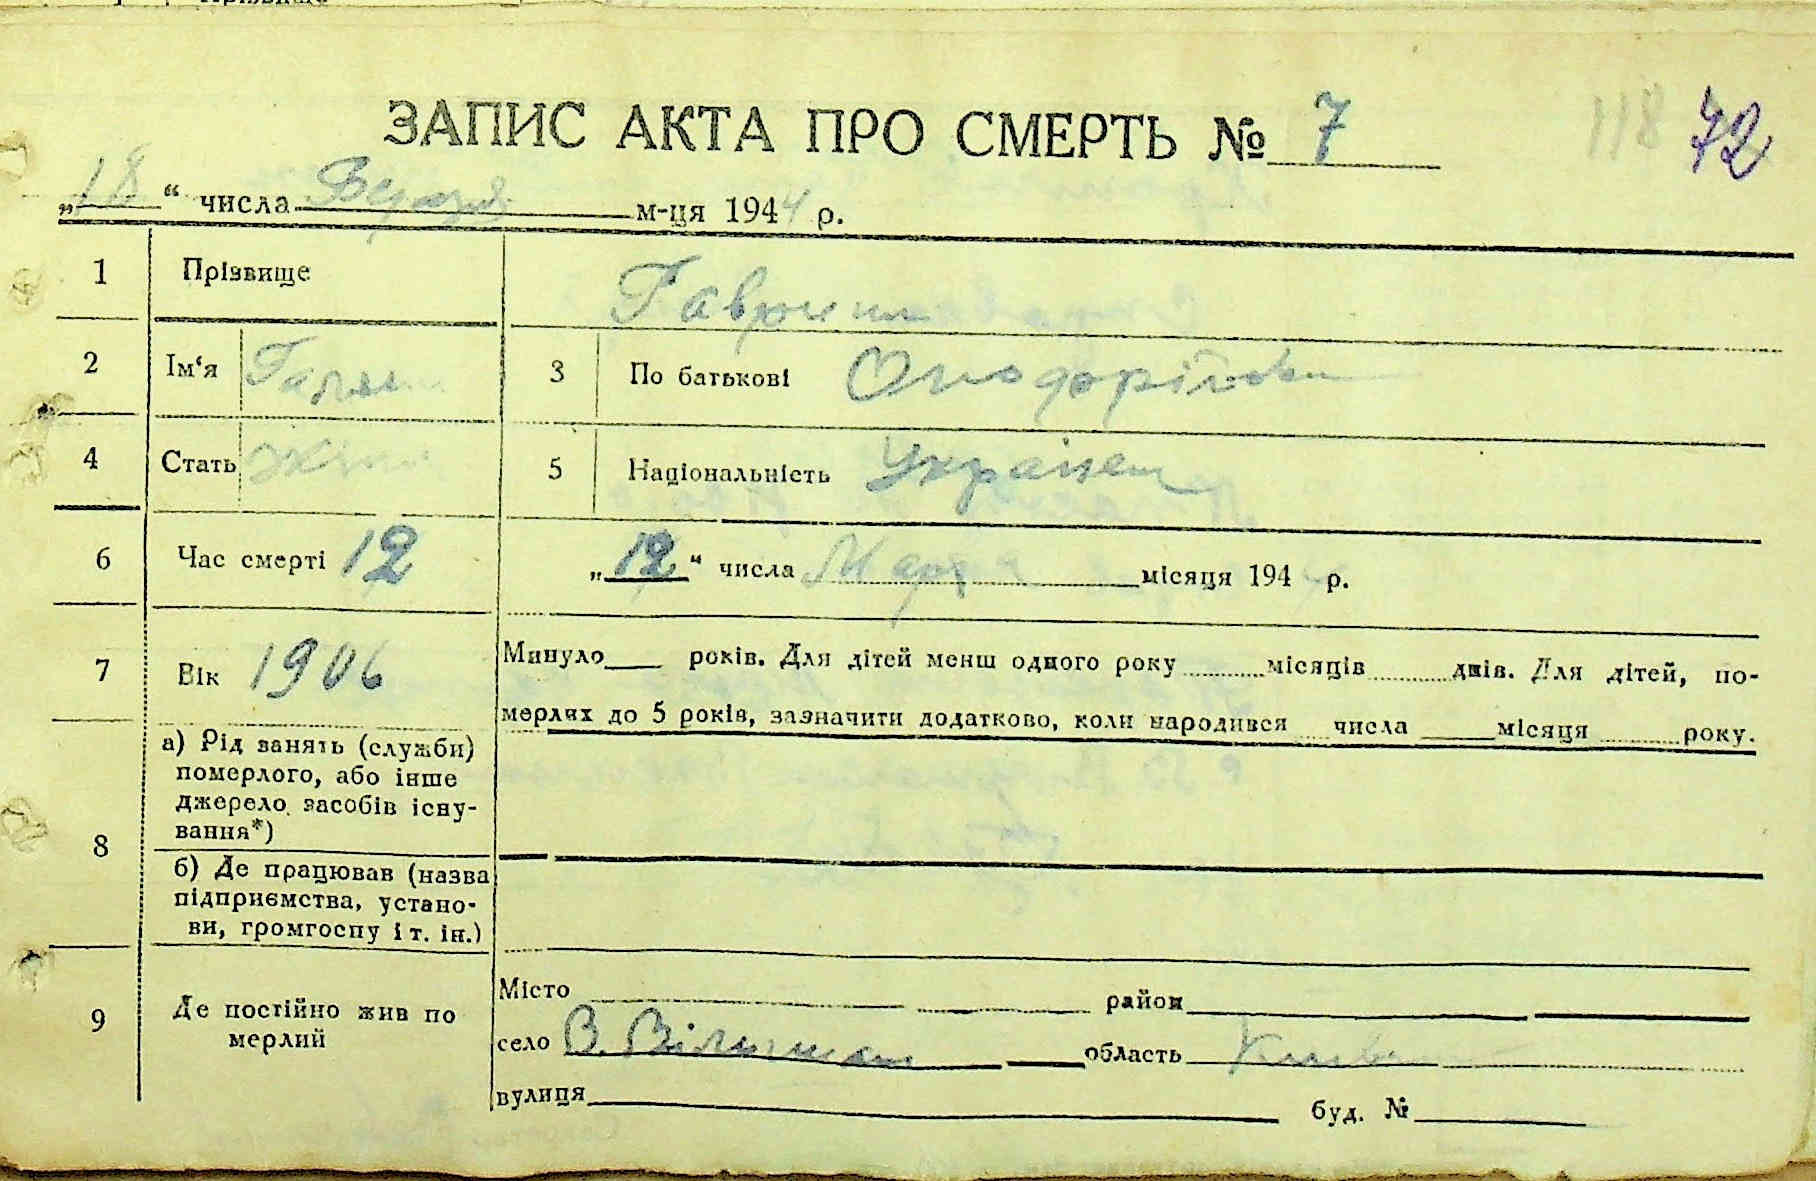 ЗАПИС АКТА ПРО СМЕРТЬ № 7
118 72
„18“ числа Березня м-ця 1944 р.
1 Прізвище Гавриш
2 Ім‘я 3 По батькові
4 Стать жін 5 Національність Українец
6 Час смерті 12 „12“ числа Март місяця 194 р.
7 Вік 1906 Минуло років. Для дітей менш одного року місяців днів. Для дітей, по-
мерлих до 5 років, зазначити додатково, коли народився числа місяця року.
8 а) Рід занять (служби)
померлого, або інше
джерело засобів існу-
вання*)
б) Де працював (назва
підприємства, устано-
ви, громгоспу і т. ін.)
9 Де постійно жив по
мерлий
Місто район
село В. Вільшан область Київ
вулиця буд. №